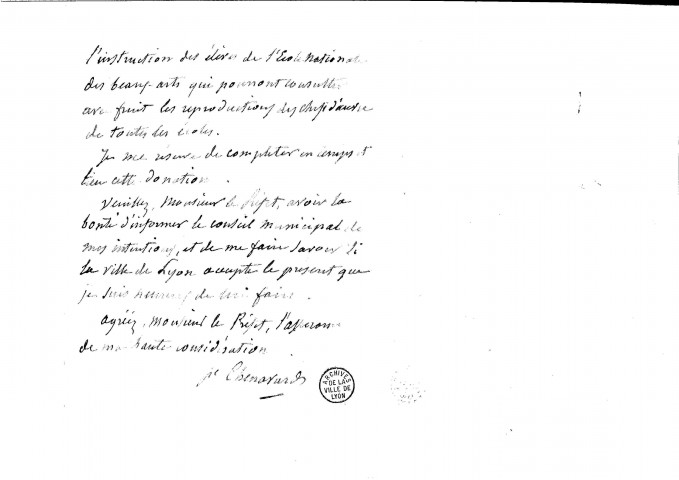 l'instruction des élèves de l'Ecole Nationale
des beaux-arts qui pourront consulter
avec fruit les reproductions des chefs d'œuvre
de toutes les écoles.
Je me réserve de completer en temps et
lieu cette donation.
Veuillez, Monsieur le Préfet, avoir la
bonté d'informer le conseil municipal de
mes intentions, et de me faire savoir si
la ville de Lyon accepte le présent que
je suis heureux de lui faire.
Agréez, Monsieur le Préfet, l'assurance
de ma haute considération
Chenavard
ARCHIVES
DE LA
VILLE DE
LYON